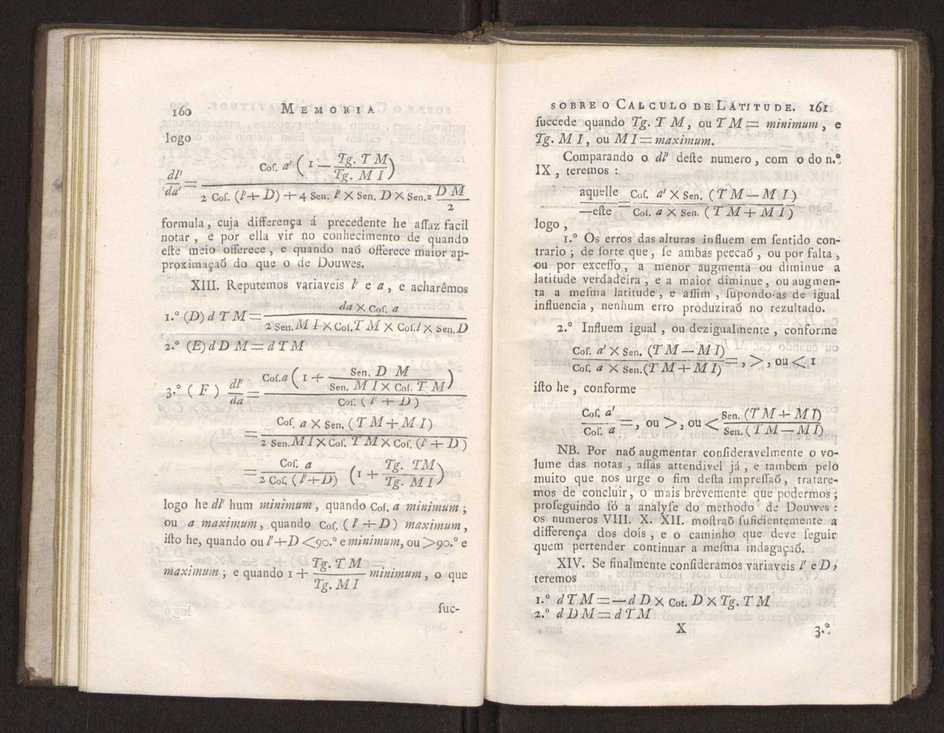 160 MEMORIA
logo
dl' / da' = Coſ. a' ( 1 — Tg. T M / Tg. M I ) / 2 Coſ. (l' + D) + 4 Sen. l' × Sen. D × Sen.² D M / 2
formula, cuja differença á precedente he aſſaz facil
notar, e por ella vir no conhecimento de quando
eſte meio offerece, e quando naõ offerece maior ap-
proximaçaõ do que o de Douwes.
XIII. Reputemos variaveis l' e a, e acharêmos
1.° (D) d T M = da × Coſ. a / 2 Sen. M I × Coſ. T M × Coſ. l × Sen. D
2.° (E) d D M = d T M
3.° ( F ) dl' / da = Coſ. a ( 1 + Sen. D M / Sen. M I × Coſ. T M ) / Coſ. ( l' + D )
= Coſ. a × Sen. ( T M + M I ) / 2 Sen. M I × Coſ. T M × Coſ. (l' + D )
= Coſ. a / 2 Coſ. ( l' + D) ( 1 + Tg. TM / Tg. M I )
logo he dl' hum minimum, quando Coſ. a minimum;
ou a maximum, quando Coſ. ( l' + D) maximum,
iſto he, quando ou l' + D < 90.° e minimum, ou > 90.° e
maximum; e quando 1 + Tg. T M / Tg. M I = minimum, o que
ſuc-
SOBRE O CALCULO DE LATITUDE. 161
ſuccede quando Tg. T M, ou T M = minimum, e
Tg. M I, ou M I = maximum.
Comparando o dl' deſte numero, com o do n.°
IX, teremos :
aquelle / —eſte = Coſ. a' × Sen. ( T M — M I ) / Coſ. a × Sen. ( T M + M I )
logo,
1.° Os erros das alturas influem em ſentido con-
trario; de ſorte que, ſe ambas peccaõ, ou por falta,
ou por exceſſo, a menor augmenta ou diminue a
latitude verdadeira, e a maior diminue, ou augmen-
ta a meſma latitude, e aſſim, ſupondo-as de igual
influencia, nenhum erro produziraõ no rezultado.
2.° Influem igual, ou dezigualmente, conforme
Coſ. a' × Sen. (T M — M I) / Coſ. a × Sen. (T M + M I) = , > , ou < 1
iſto he, conforme
Coſ. a' / Coſ. a = , ou > , ou < Sen. (T M + M I) / Sen. ( T M — M I)
NB. Por naõ augmentar conſideravelmente o vo-
lume das notas, aſſás attendivel já, e tambem pelo
muito que nos urge o fim deſta impreſſaõ, tratare-
mos de concluir, o mais brevemente que podermos;
proſeguindo ſó a analyſe do methodo de Douwes :
os numeros VIII. X. XII. moſtraõ ſuficientemente a
differença dos dois, e o caminho que deve ſeguir
quem pertender continuar a meſma indagaçaõ.
XIV. Se finalmente conſideramos variaveis l' e D,
teremos
1.° d T M = — d D × Cot. D × Tg. T M
2.° d D M = d T M
X 3.°